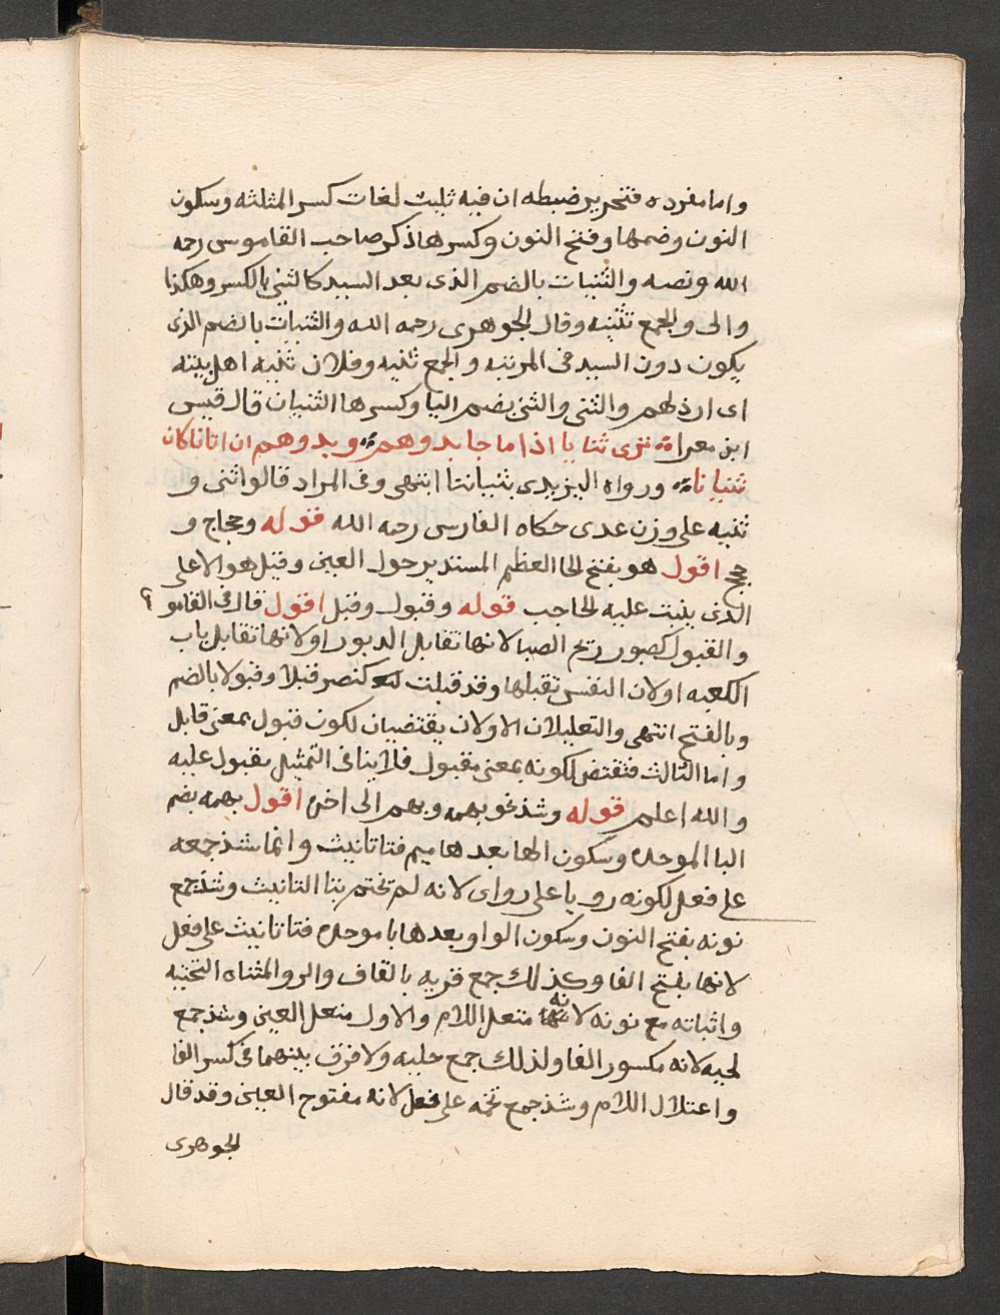 واما مفرده فتحرير ضبطه ان فيه ثلث لغات كسر المثلثه وسكون
النون وضمها وفتح النون وكسرها ذكر صاحب القاموس رحمه
الله ونصه والثنيات بالضم الذى بعد السيد كالثنى بالكسر وهكذا
والى والجمع تثنيه وقال الجوهرى رحمه الله والثنيات بالضم الذى
يكون دون السيد فى المرتبه والجمع ثنيه وفلان ثنيه اهل بيته
اى ارذلهم والثنى والثنى بضم اليا وكسرها الثنيان قال قيس
ابن معرا ترى ثنايا اذا ما جا بدوهم وبدوهم ان اتانا كان
ثنيانا ورواه اليزيدى بثنياننا انتهى وفى المراد قالوا ثنى و
ثنيه على وزن عدى حكاه الفارسى رحمه الله قوله وحجاج و
حجج اقول هو بفتح الحا العظم المستدير حول العين وقيل هو الاعلى
الذى ينبت عليه الحاجب قوله وقبول وقبل اقول قال فى القامو
والقبول كصبور ريح الصبا لانها تقابل الدبور او لانها تقابل باب
الكعبه او لان النفس تقبلها وقد قبلت كنصر قبلا وقبولا بالضم
وبالفتح انتهى والتعليلان الاولان يقتضيان لكون قبول بمعنى قابل
واما الثالث فتقتضى لكونه بمعنى مقبول فلا ينافى التمثيل بقبول عليه
والله اعلم قوله وشذ نحو بهمه وبهم الى اخره اقول بهمه بضم
البا الموحده وسكون الها بعدها ميم فتا تانيث وانما شذ جمعه
على فعل لكونه رويا على رواى لانه لم تختم بتا التانيث وشذ جمع
نوبه بفتح النون وسكون الواو بعدها با موحده فتا تانيث على فعل
لانها بفتح الفا وكذلك جمع قريه بالقاف والرو المثناه التحتيه
واثباته مع نونه لانه معتل اللام والاول معتل العين وشذ جمع
لحيه لانه مكسور الفا ولذلك جمع حليه ولا فرق بينهما فى كسر الفا
واعتلال اللام وشذ جمع تخمه على فعل لانه مفتوح العين وقد قال
الجوهرى